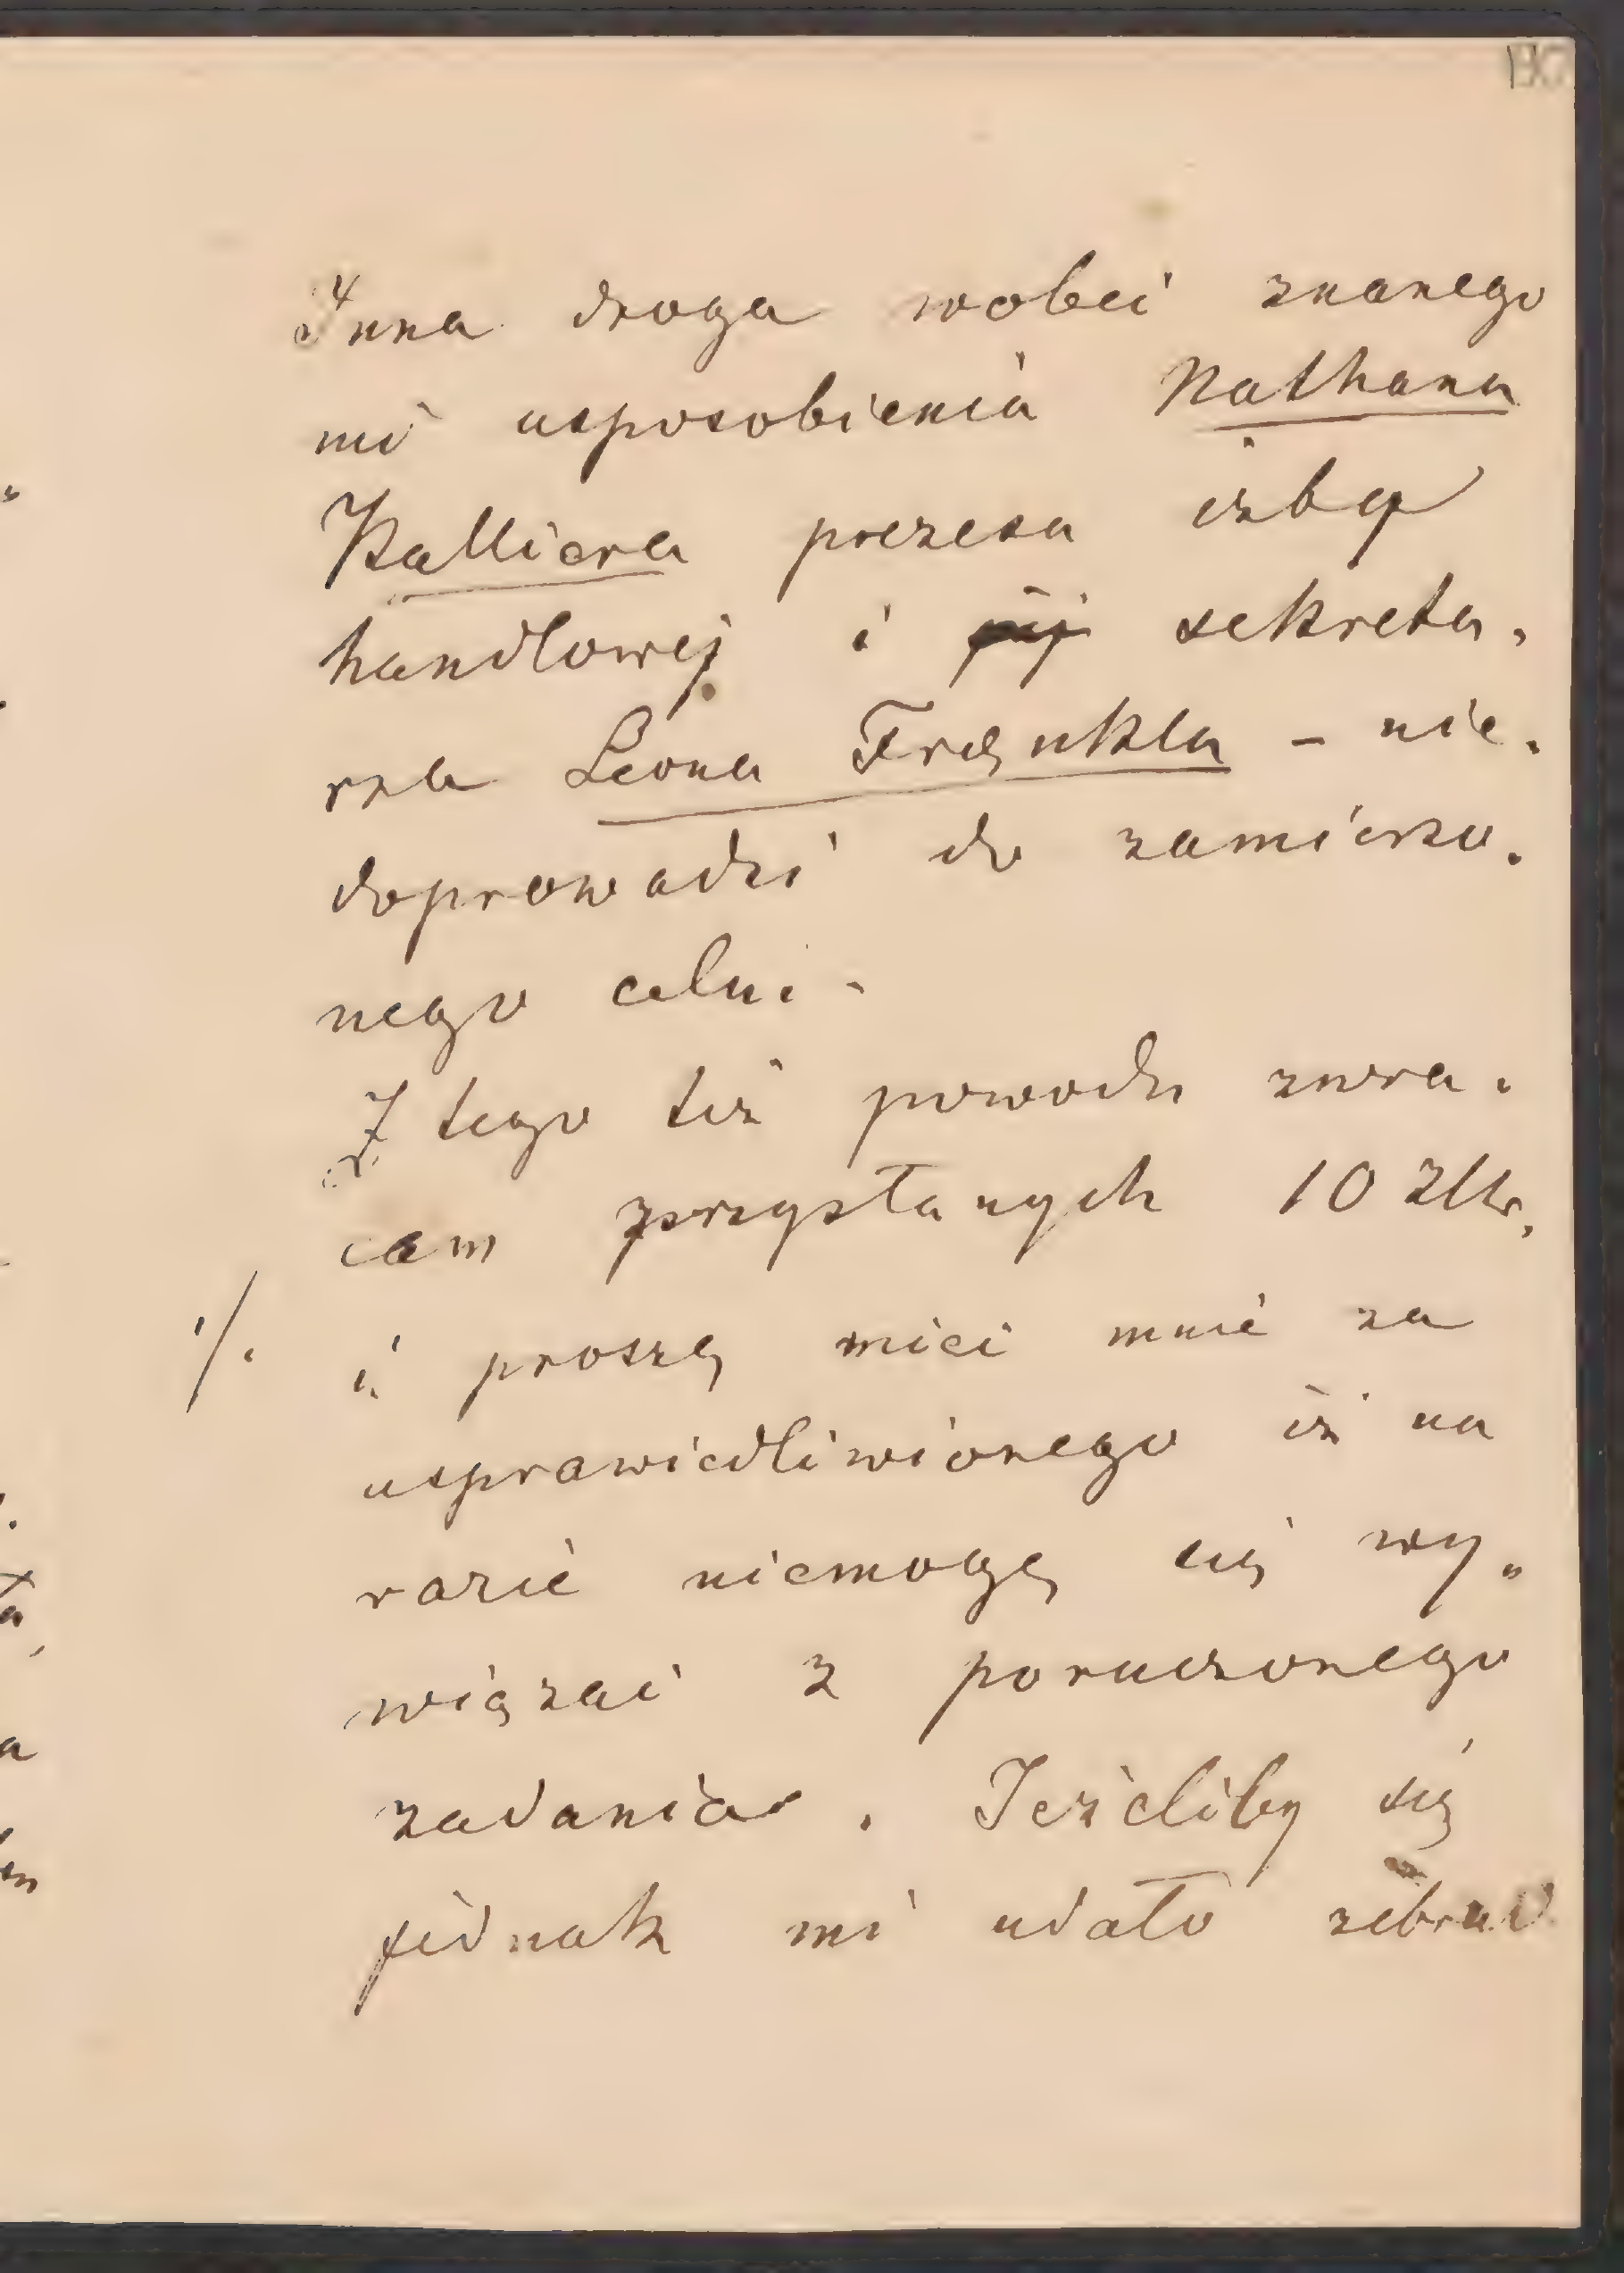 Inna droga wobec znanego
mi usposobienia Nathana
Kalliera prezesa izby
handlowej i jej sekreta„
rza Leona Frenkla – nie„
doprowadzi do zamierzo„
nego celu.
Z tego też powodu zwra„
cam przysłanych 10 złr.
i proszę mieć mnie za
usprawiedliwionego iż na
razie niemogę się wy„
wiązać z poruczonego
zadania. Jeżeliby się
jednak mi udało zebrać